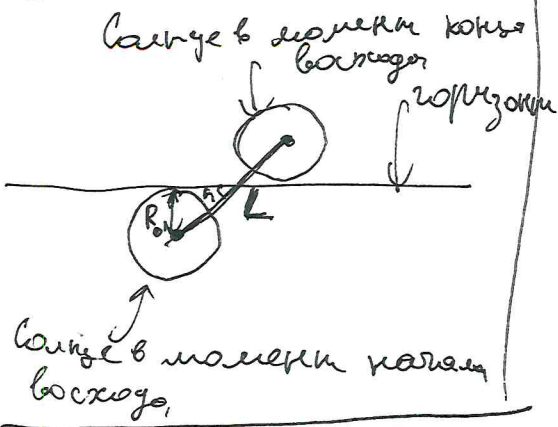 Солнце в момент конца
восхода
горизонт
R₀
h
L
Солнце в момент начала
восхода,